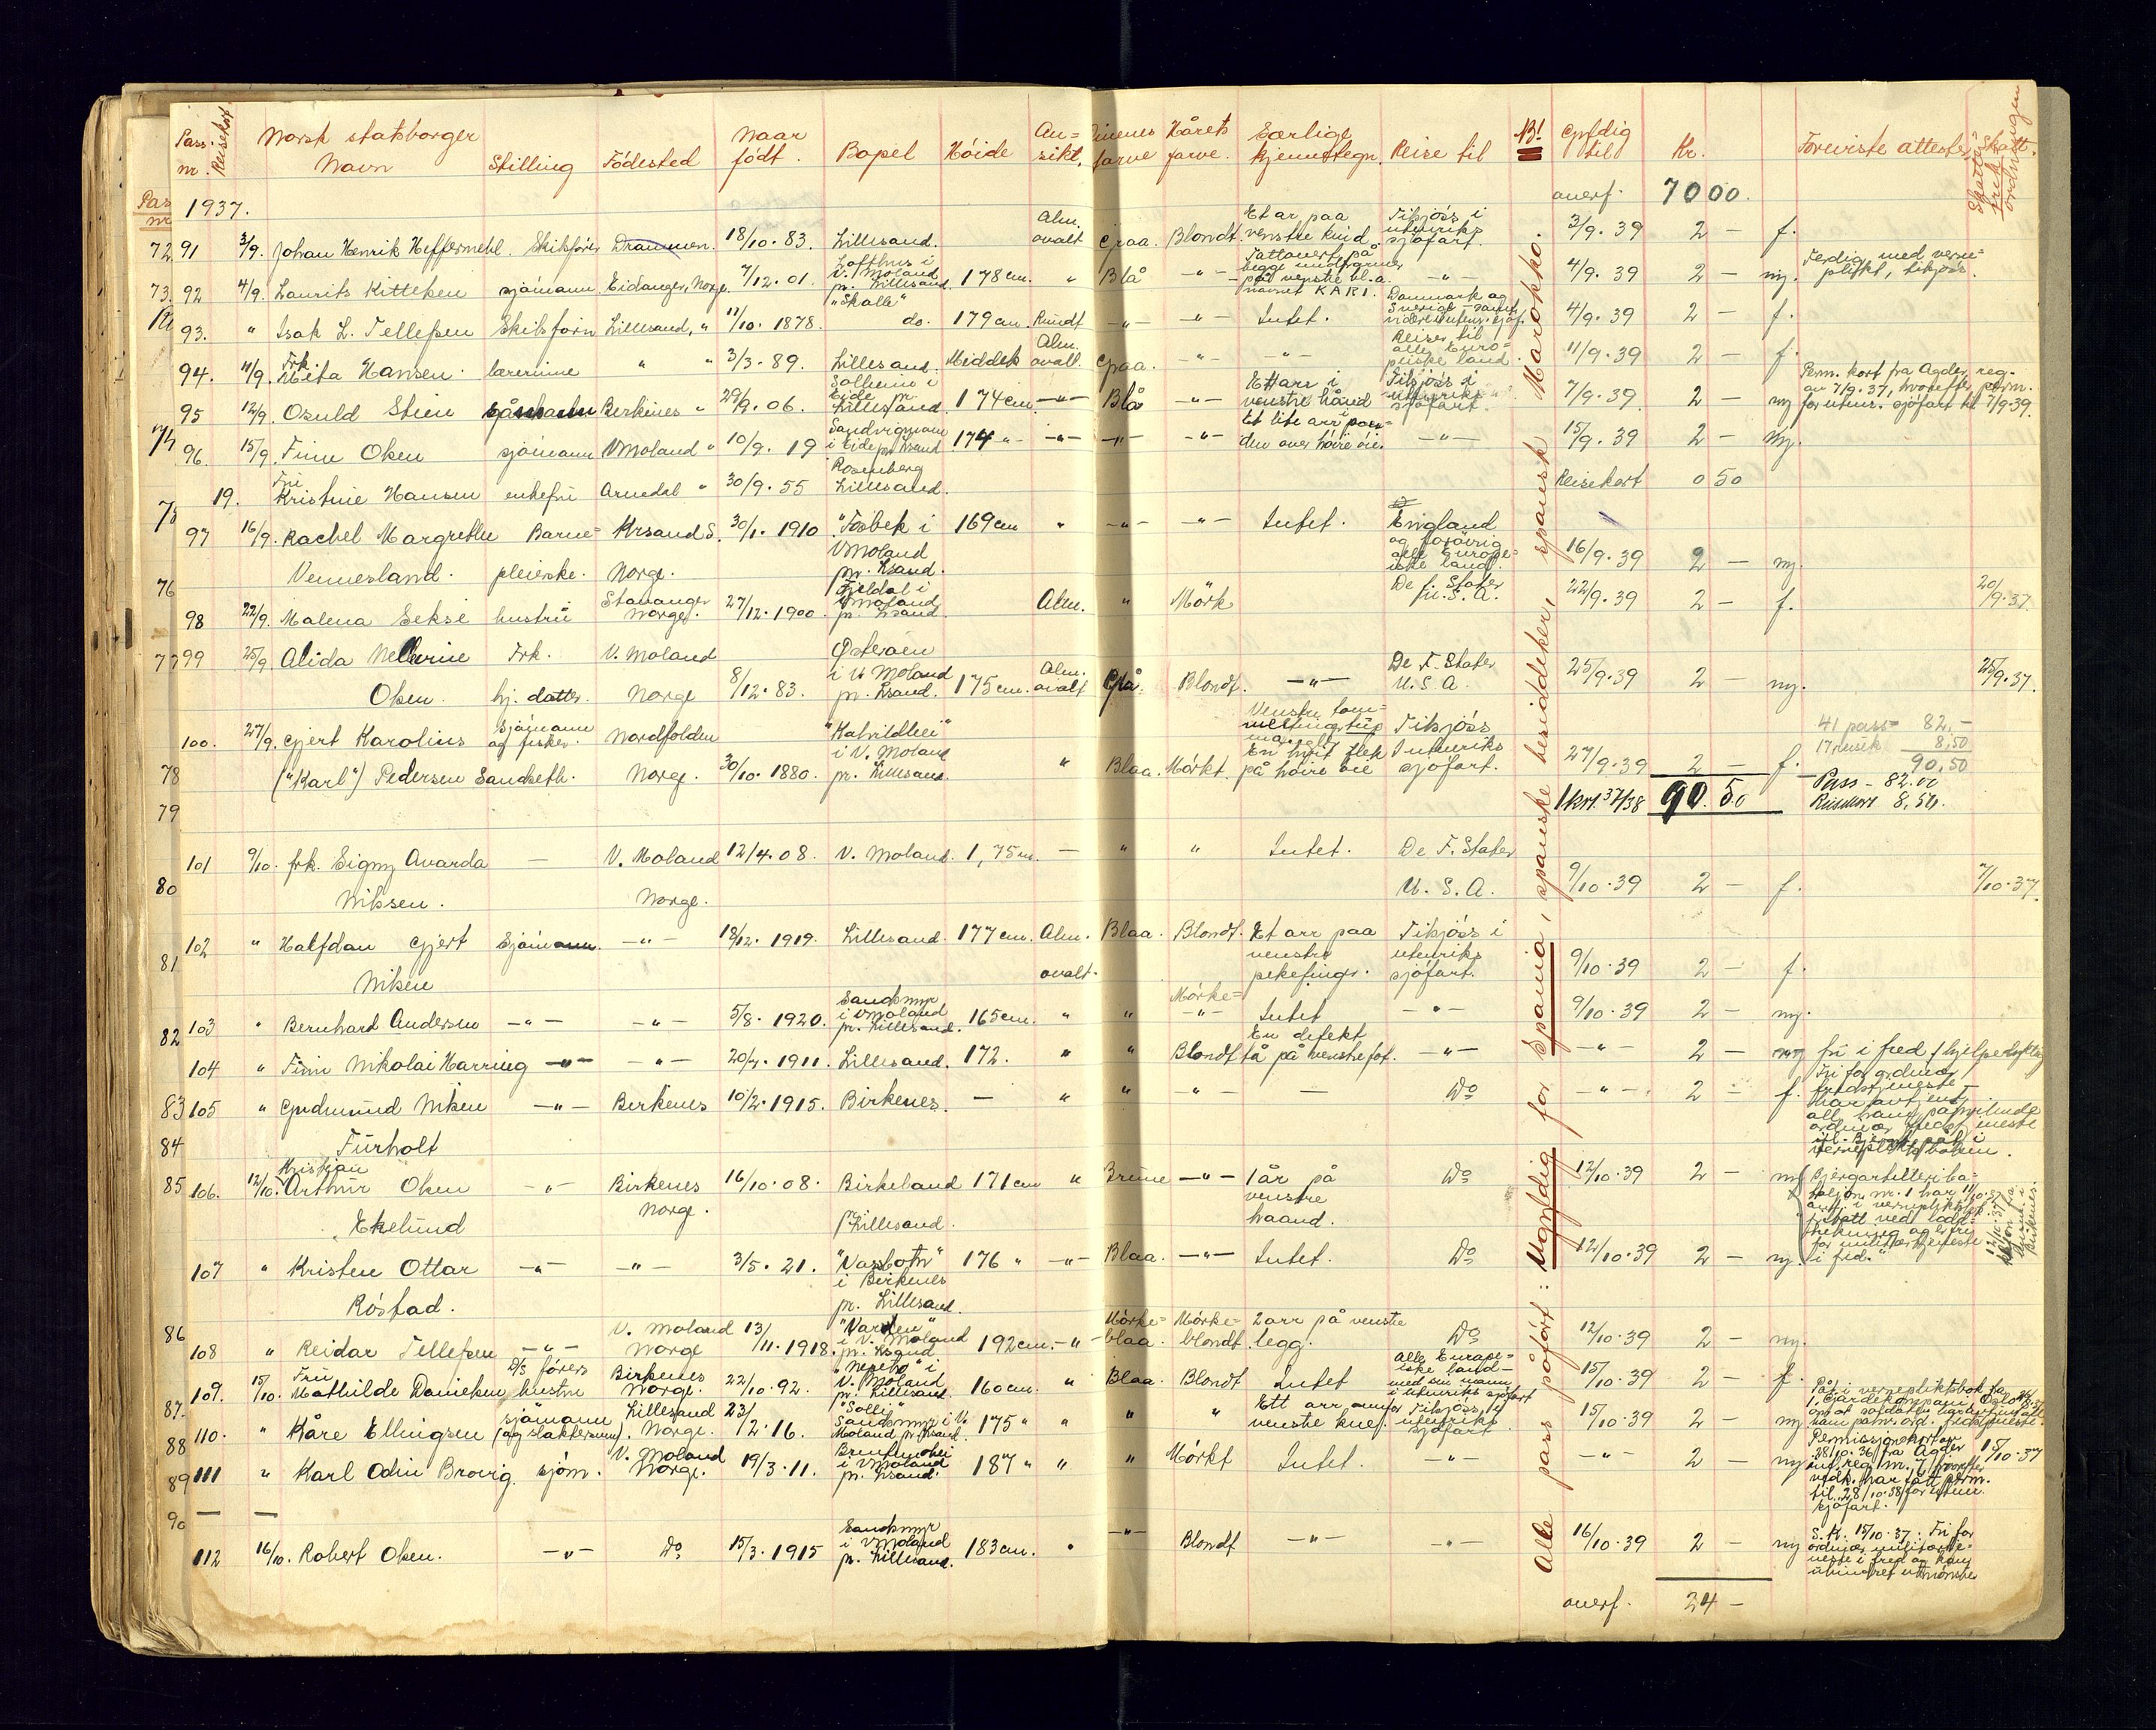 Pass nr. Reisekort Norsk statsborger Navn Stilling Födested Naar födt. Bopel Höide An= sikt. Öinenes farve Hårets farve. Særlige kjennetegn. Reise til NB! Gyldig til Kr. Foreviste attester Skatte trek Skatt. ordningen
1937. overf. 7000.
91 3/9. Johan Henrik Heffermehl. Skibsförer Drammen. 18/10. 83. Lillesand. Alm. ovalt Graa. Blondt. Et ar paa venstre kind Tilsjöss i utenriks sjöfart. 3/9. 39 2 — f.
92 4/9. Laurits Kittelsen sjömann Eidanger, Norge. 7/12. 01. Lofthus i V. Moland pr. Lillesand 178 cm. " Blå —"— Tattovert på begge underarmer på venstre bl.a. navnet KARI. —"— 4/9. 39 2 — ny. Ferdig med verne- plikt, tilsjöss.
93. " Isak L. Tellefsen Skibsförer Lillesand, " 11/10. 1878. "Skalle" do. 179 cm. Rundt —"— —"— Intet. Danmark og Sverige samt videre utenr. sjöf. 4/9. 39 2 — f.
94. 11/9. Frk. Meta Hansen. lærerinne " " 3/3. 89. Lillesand. Middels Alm. ovalt. Graa. —"— —"— Reiser til alle Euro= peiske land. 11/9. 39 2 — f.
95 12/9. Osuld Stien sjömann Birkenes " 29/9. 06. Solheim i Eide pr. Lillesand. 174 cm. —"— Blå —"— Et arr i venstre hånd Tilsjöss i utenriks sjöfart. 7/9. 39. 2 — ny Perm. kort fra Agder reg. av 7/9. 37, hvorefter perm. for utenr. sjöfart til 7/9. 39.
96. 15/9. Finn Olsen sjömann V Moland " 10/9. 19 Sandvigmoen i Eide pr. Lsand. 174 " —"— —"— —"— Et lite arr i pan- den over höire öie. —"— 15/9. 39 2 — Ny.
19. Fru Kristine Hansen enkefru Arendal " 30/9. 55 Rosenberg Lillesand. Reisekort 0 50
97 16/9. Rachel Margrethe Barne= Krsand S. 30/1. 1910 "Fosbek i 169 cm " —"— —"— Intet. England
Vennesland. pleierske. Norge. V Moland pr. Lsand. og forövrig alle Europe= iske land. 16/9. 39 2 — ny.
98 22/9. Malena Sekse hustru Stavanger Norge. 27/12. 1900. Fjeldal i V Moland pr. Lsand. Alm. " Mörk De f. Stater pu. S. A. 22/9. 39 2 — f. 20/9. 37.
99 25/9. Alida Nellerine Frk. V. Moland Österöen
Olsen. hj. datter. Norge 8/12. 83. i V Moland pr. Lsand. 175 cm. Alm. ovalt Grå. Blondt. —"— De F. Stater U. S. A. 25/9. 39 2 — ny. 25/9. 37.
100. 27/9. Gjert Karolius sjömann og fisker. Nordfolden "Kalvildhei" Venstre tom= meltingertup mangler Tilsjöss 41 pass= 82.—
("Karl") Pedersen Sandseth. Norge. 30/10. 1880. i V. Moland pr. Lillesand. " Blaa. Mörkt. En hvit flek på höire öie utenriks sjöfart. 27/9. 39 2 — f. 17 reisek 8,50 90,50
1 krt. 37/38 90. 50 Pass - 82.00 Reisekort 8.50.
101 9/10. frk. Signy Avarda — V. Moland 12/4. 08. V. Moland. 1,75 m. — " " Intet. De F. Stater
Nilsen. Norge. U. S. A. 9/10. 39 2 — f. 7/10. 37.
102 " Halfdan Gjert Sjömann. —"— 18/12. 1919. Lillesand. 177 cm. Alm. Blaa. Blondt. Et arr paa Tilsjöss i
Nilsen ovalt. venstre pekefinger. utenriks sjöfart. 9/10. 39 2 — f.
103 " Bernhard Andersen —"— —"— 5/8. 1920. Sandsmyr i V Moland pr. Lillesand. 165 cm. " " Mörke= —"— Intet —"— 9/10. 39 2 — ny.
104 " Finn Nikolai Harring —"— —"— 20/7. 1911. Lillesand. 172. " " Blondt En defekt tå på venstre fot. —"— —"— 2 — ny fri i fred f hjelpepliktig
105 " Gudmund Nilsen —"— Birkenes 10/2. 1915. Birkenes. — " " —"— — Do —"— 2 — f. Fri for ordinær fredstjeneste
Furholt
106. 12/10. Kristian Arthur Olsen —"— Birkenes 16/10. 08. Birkeland 171 cm " Brune —"— 1 år på Do 12/10. 39 2 — ny Bjergartilleriba=
Ekelund Norge. pr. Lillesand. venstre haand. taljon nr. 1 har 11/10. 37
107 " Kristen Ottar —"— —"— 3/5. 21. "Vasbotn" 176 " —"— Blaa. —"— Intet. Do 12/10. 39 2 — ny. i fred."
Röstad. i Birkenes pr. Lillesand.
108 " Reidar Tellefsen —"— V. Moland Norge 13/11. 1918. "Varden" i V. Moland pr. Lsand 192 cm. —"— Mörke= blaa. Mörke= blondt 2 arr på venstre legg. Do 12/10. 39 2 — ny.
109. 15/10. Fru Mathilde Danielsen D/S förers hustru Birkenes Norge. 22/10. 92. i V. Moland pr. Lillesand 160 cm. " Blaa. Blondt Intet Alle Europe= iske land— med sin mann i utenriks sjöfart 15/10. 39 2 — f.
110. " Kåre Ellingsen sjömann (og slaktersvenn). Lillesand Norge. 23/12. 16. "Solli" Sandsmyr i V. Moland pr. Lsand. 175 " " " " Ett arr venstre kne. Tilsjöss i utenriks sjöfart 15/10. 39 2 — ny
111 " Karl Odin Brovig. sjöm. V. Moland Norge. 19/3. 11. i V Moland pr. Lsand. 187 " " " Mörkt Intet. —"— —"— 2 — ny Permissjonskort av 28/10. 36 fra Agder 15/10. 37
til 28/10. 38 for utenr. sjöfart.
— —
112 16/10. Robert Olsen. —"— Do 15/3. 1915 Sandsmyr i V Moland pr. Lillesand. 183 cm. " —"— Blondt —"— —"— 16/10. 39 2 — ny S. K. 15/10. 37. Fri for ordinær militærtje= neste i fred og kan
overf. 24 —
Alle pass påfört: Ugyldig for Spania, spanske besiddelser, spansk Marokko.
72
73.
76
77
78
79
80
81
82
83
84
85
86
87.
88
89
90